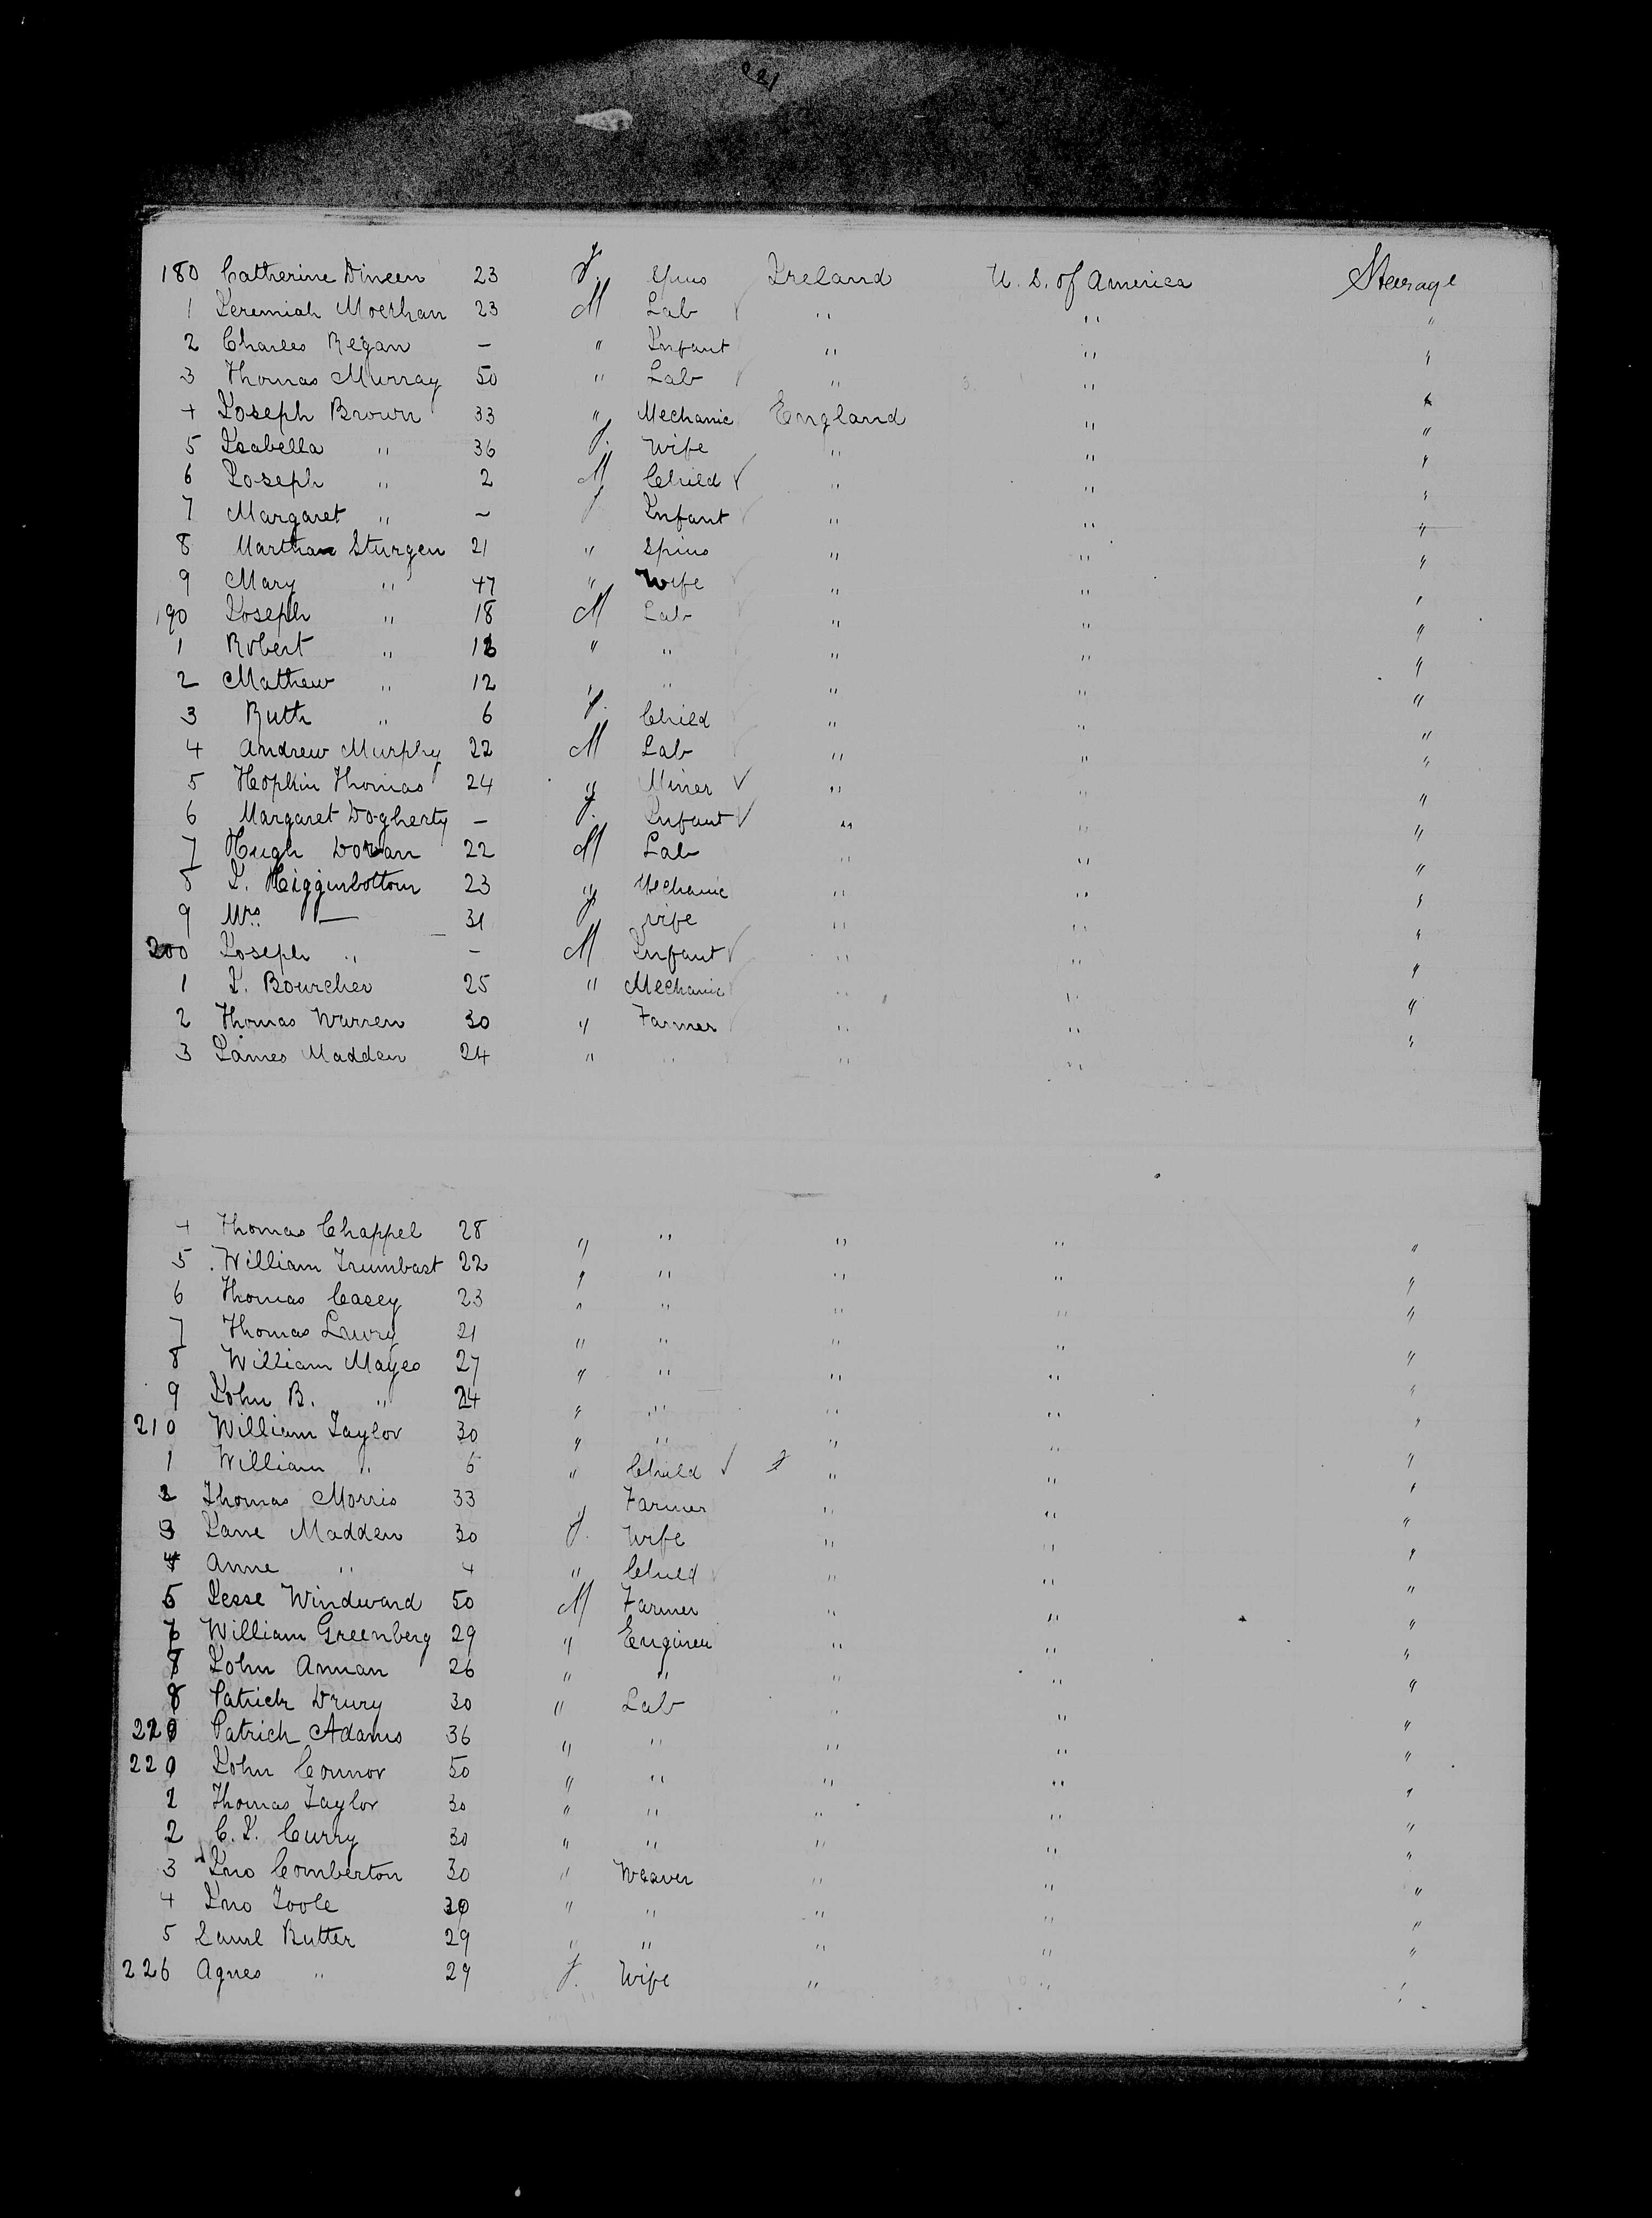 180 Catherine Dineen 23 f. Spins Ireland U. S. of America Steerage
1 Jeremiah 23 M Lab " " "
2 Charles Regan - " Infant " " "
3 Thomas Murray 50 " Lab " " "
4 Joseph Brown 33 " Mechanic England " "
5 Isabella " 36 f. Wife " " "
6 Joseph " 2 M Child " " "
7 Margaret " - f Infant " " "
8 Martha Sturgen 21 " Spins " " "
9 Mary " 47 " Wife " " "
190 Joseph " 18 M Lab " " "
1 Robert " " " " " "
2 Mathew " 12 " " " " "
3 Ruth " 6 f. Child " " "
4 Andrew Murphy 22 M Lab " " "
5 Hopkin Thomas 24 " Miner " " "
6 Margaret Dogherty - f. Infant " " "
7 Hugh Doran 22 M Lab " " "
8 J. Higginbottom 23 " Mechanic " " "
9 Mrs. — 31 f Wife " " "
200 Joseph " - M Infant " " "
1 J. Bourcher 25 " Mechanic " " "
2 Thomas Warren 30 " Farmer " " "
3 James Madden 24 " " " " "
4 Thomas Chappel 28 " " " " "
5 William Trumbast 22 " " " " "
6 Thomas Casey 23 " " " " "
7 Thomas Lowry 21 " " " " "
8 William Mayes 27 " " " " "
9 John B. " 24 " " " " "
210 William Taylor 30 " " " " "
1 William " 6 " Child " " "
2 Thomas Morris 33 " Farmer " " "
3 Jane Madden 30 f. Wife " " "
4 Anne " 4 " Child " " "
5 Jesse Windward 50 M Farmer " " "
6 William Greenberg 29 " Engineer " " "
7 John Annan 26 " " " " "
8 Patrick Drury 30 " Lab " " "
Patrick Adams 36 " " " " "
220 John Connor 50 " " " " "
1 Thomas Taylor 30 " " " " "
2 C. J. Curry 30 " " " " "
3 Jno Comberton 30 " Weaver " " "
4 Jno Toole 30 " " " " "
5 Butter 29 " " " " "
226 Agnes " 29 f. Wife " " "